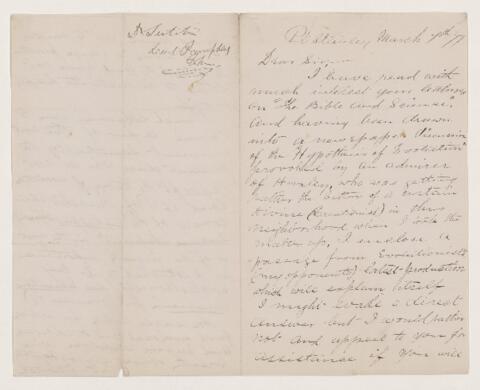 Pt Stanley March 7th 77
Dear Sir
I have read with
much interest your lectures
on "The Bible and Science"
and having been drawn
into a newspaper discussion
of the "Hypothesis of Evolution"
provoked by an admirer
of Huxley, who was getting
rather the better of a certain
(Creationist) in this
neighborhood when I took the
matter up, I enclose a
passage from Evolutionist's
(my opponents) latest production
which will explain itself
I might make a direct
answer but I would rather
not and appeal to you for
assistance if you will